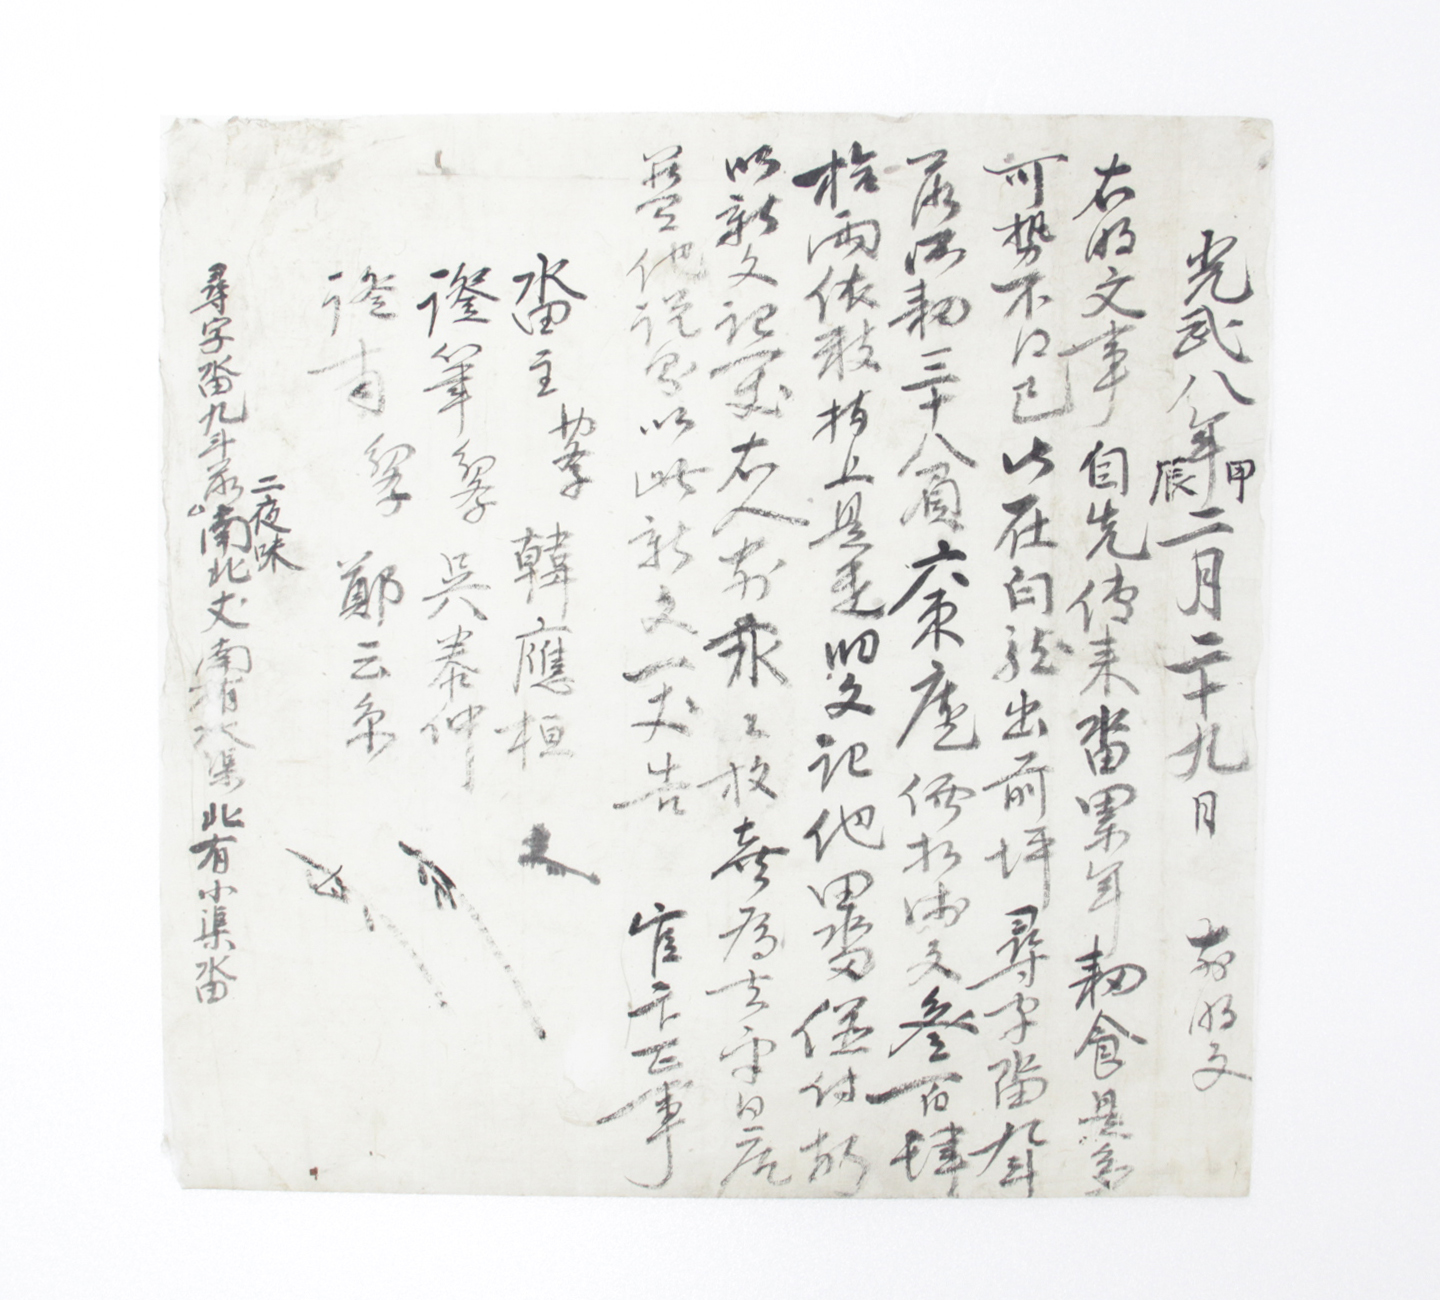 光武八年甲辰二月二十九日 前明文
右明文事自先傳來畓累年耕食是多
可勢不得已此在白活出前坪尋字畓九斗
落所耕三十八負六束廑價折錢文叄百肆
拾兩依數捧上是遣旧文記他田畓倂付故
以新文記一丈右人前永永放賣爲去乎日後
若有他說則以此新文一丈告 官卞正事
畓主 喪 韓應桓
證筆 喪 吳泰仲
證有 喪 鄭云京
二夜味
尋字畓九斗落南北丈南有大渠北有小渠畓